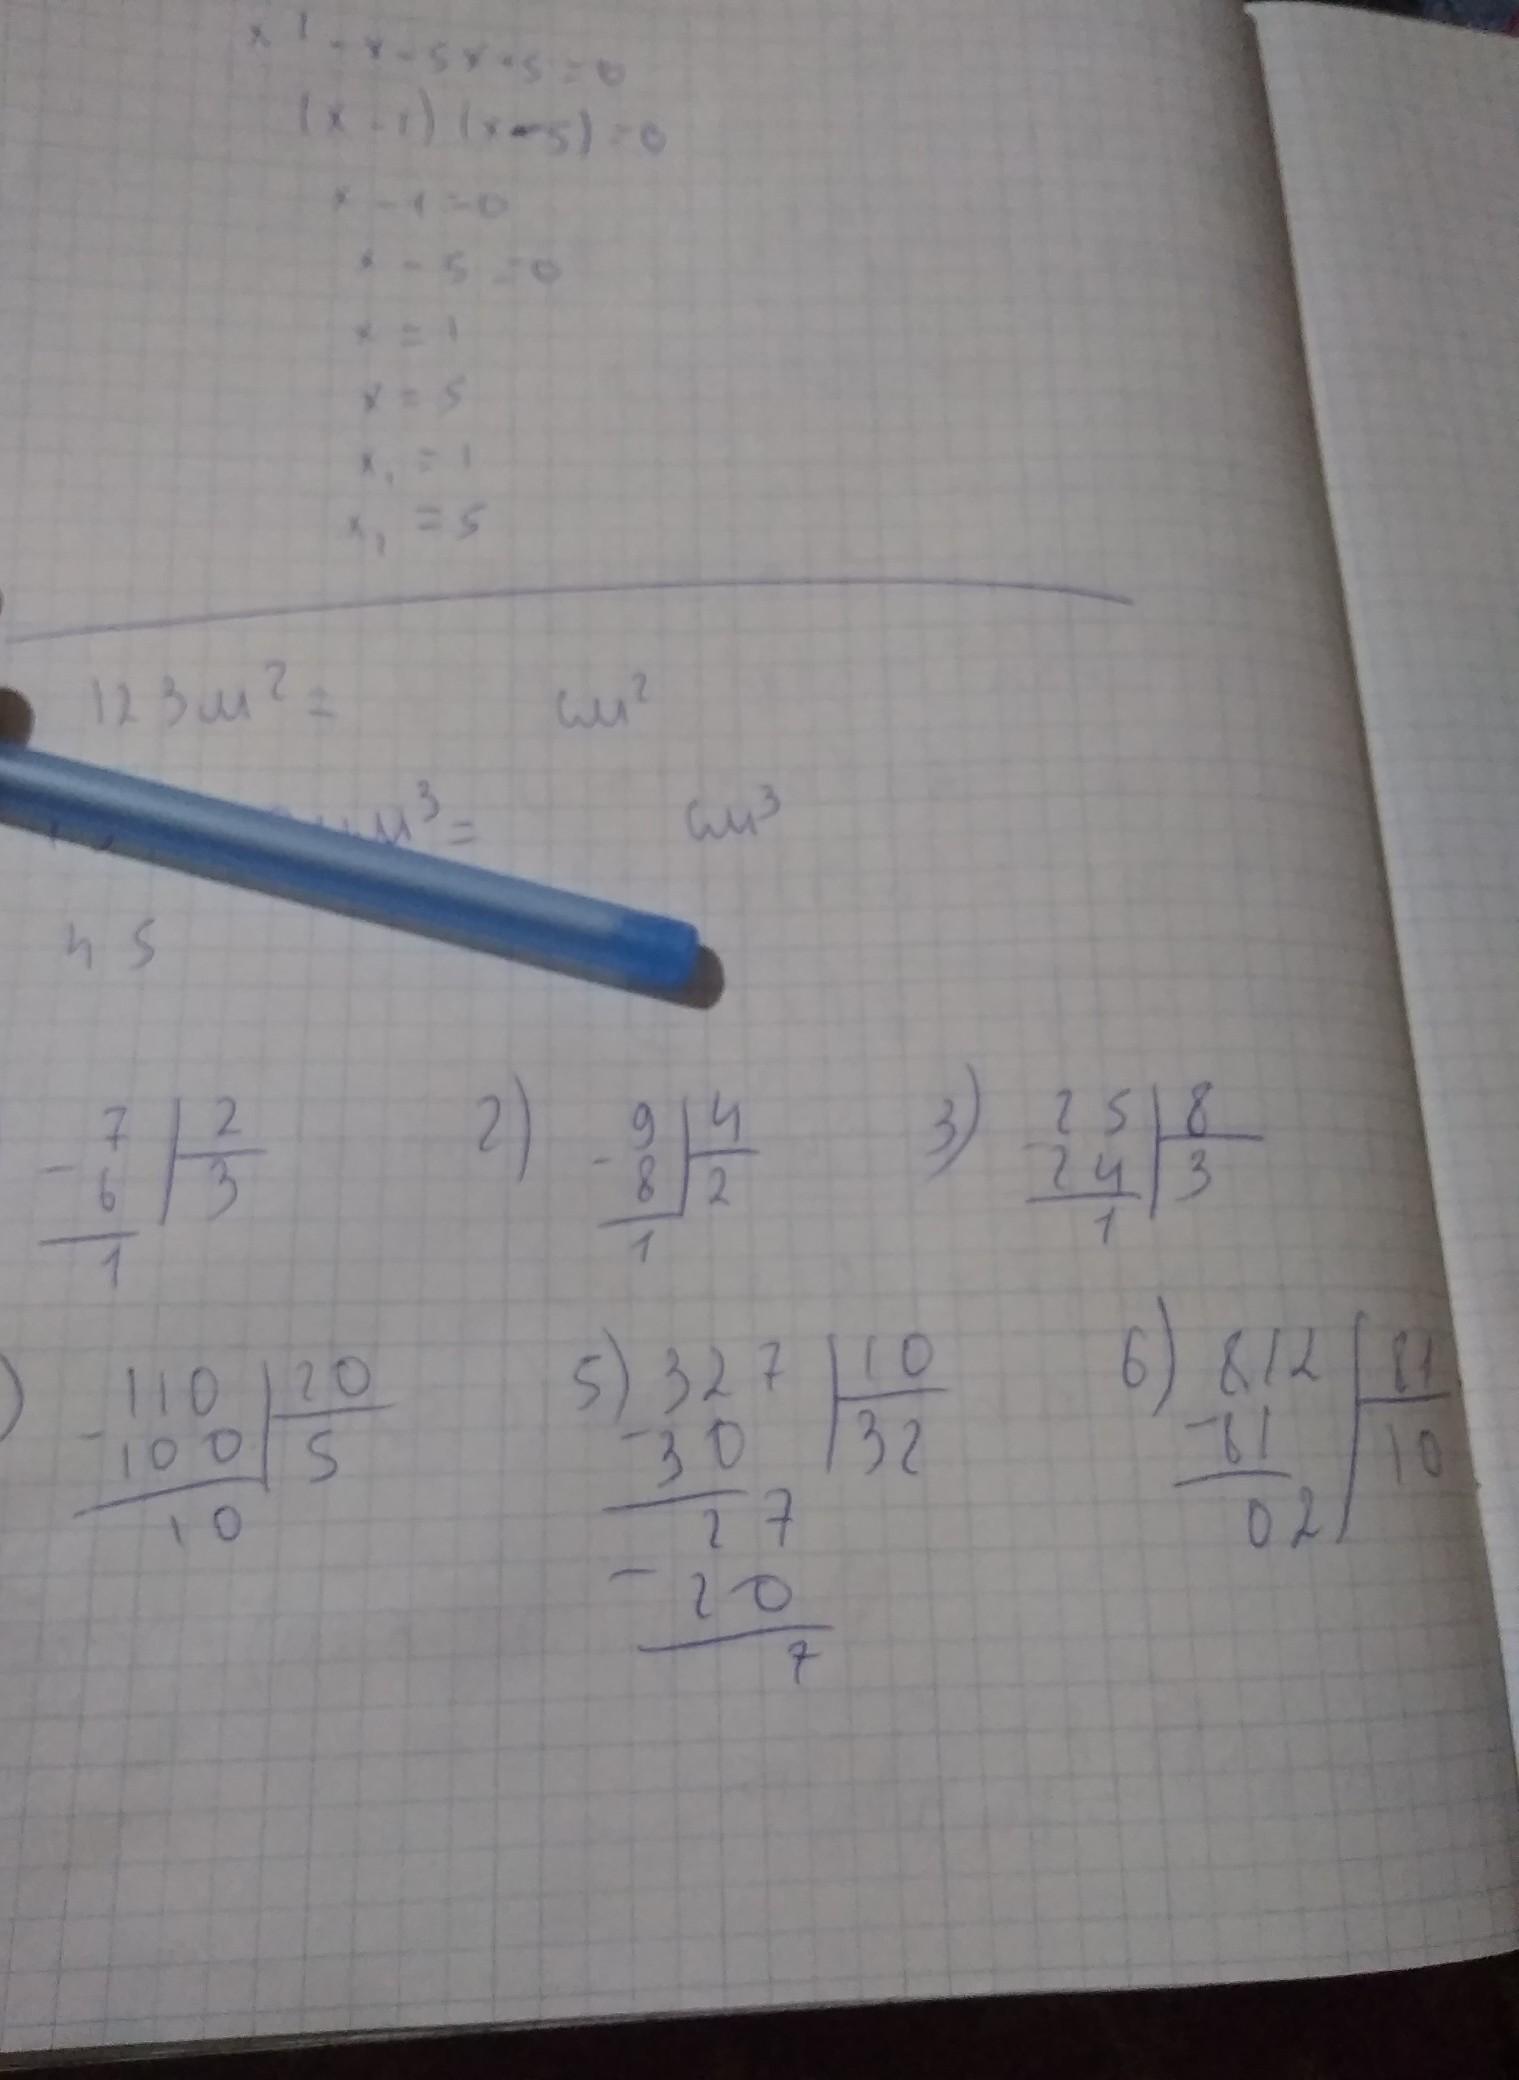 x² - x - 5x + 5 = 0
(x - 1) (x - 5) = 0
x - 1 = 0
x - 5 = 0
x = 1
x = 5
x₁ = 1
x₂ = 5
123 м² = см²
м³ = см³
45
7 | 2
- 6 | 3
1
2) 9 | 4
- 8 | 2
1
3) 25 | 8
- 24 | 3
1
) 110 | 20
- 100 | 5
10
5) 327 | 10
- 30 | 32
27
- 20
7
6) 812 | 81
- 81 | 10
02